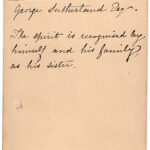 George Sutherland Esq.
The spirit is recognised by
himself and his family
as his sister.